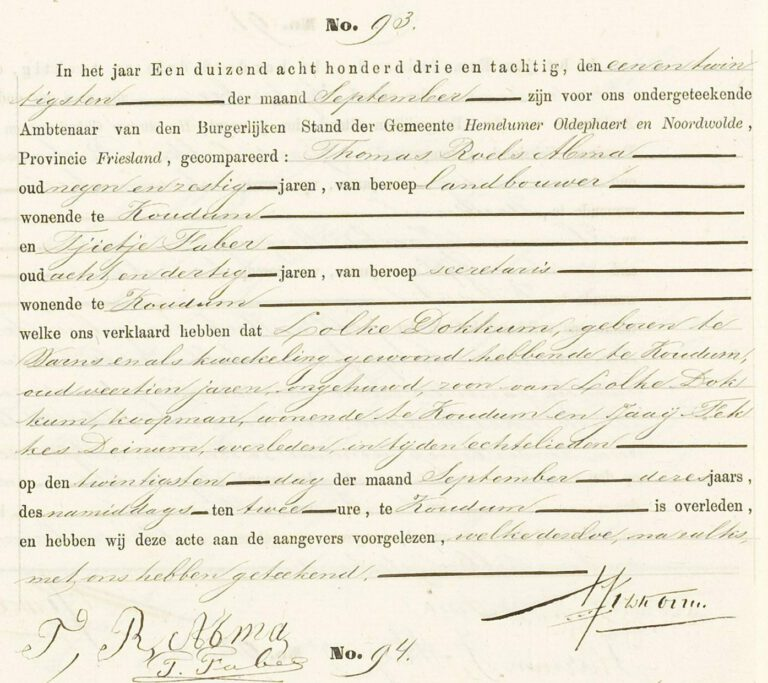 No. 93.
In het jaar Een duizend acht honderd drie en tachtig, den een en twin
tigsten der maand September zijn voor ons ondergeteekende
Ambtenaar van den Burgerlijken Stand der Gemeente Hemelumer Oldephaert en Noordwolde,
Provincie Friesland, gecompareerd: Thomas Roels Abma
oud negen en zestig jaren, van beroep landbouwer
wonende te Koudum
en Tjietje Faber
oud acht en dertig jaren, van beroep secretaris
wonende te Koudum
welke ons verklaard hebben dat Lolke Dokkum, geboren te
Warns en als kweekeling gewoond hebbende te Koudum,
oud veertien jaren, ongehuwd, zoon van Lolke Dok
kum, koopman, wonende te Koudum en Jaaij Fek
kes Deinum, overleden, in tijden echtelieden
op den twintigsten dag der maand September dezes jaars,
des namiddags ten twee ure, te Koudum is overleden,
en hebben wij deze acte aan de aangevers voorgelezen, welke dezelve, na zulks,
met ons hebben geteekend.
T, R, Abma
T. Faber
No. 94.